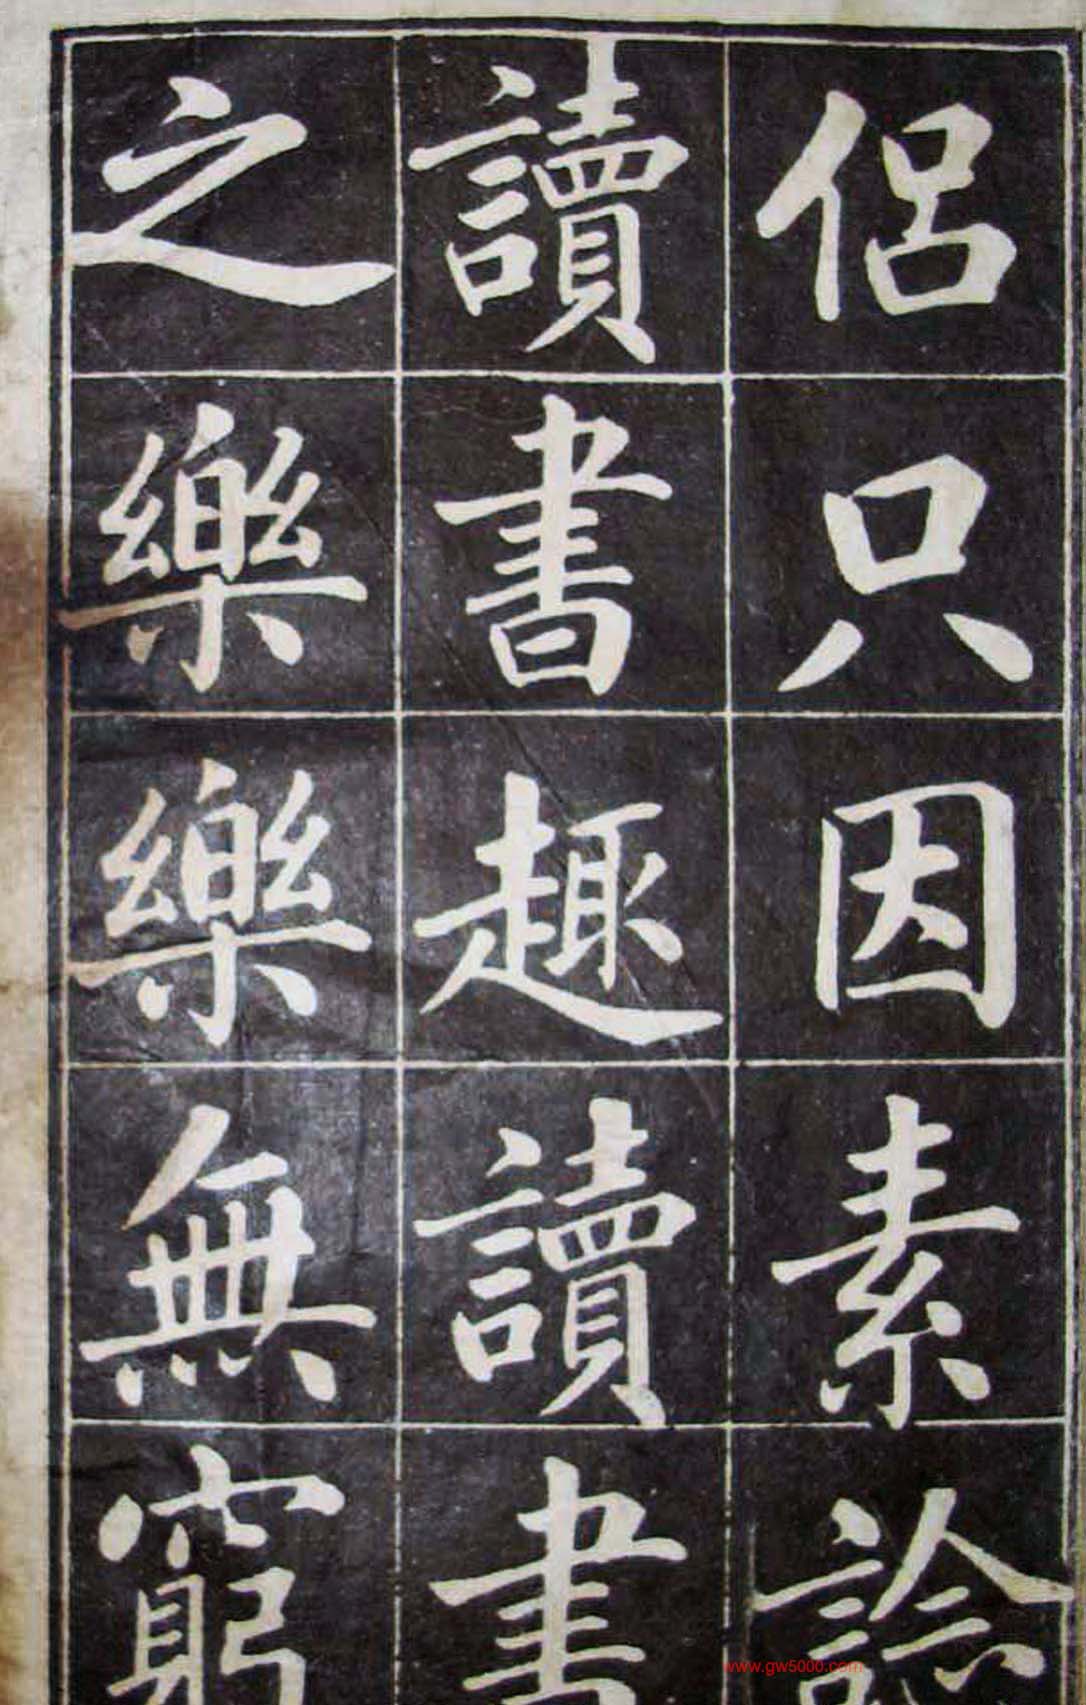 侣只因素諗
讀書趣讀書
之樂樂無窮
www.gw5000.com